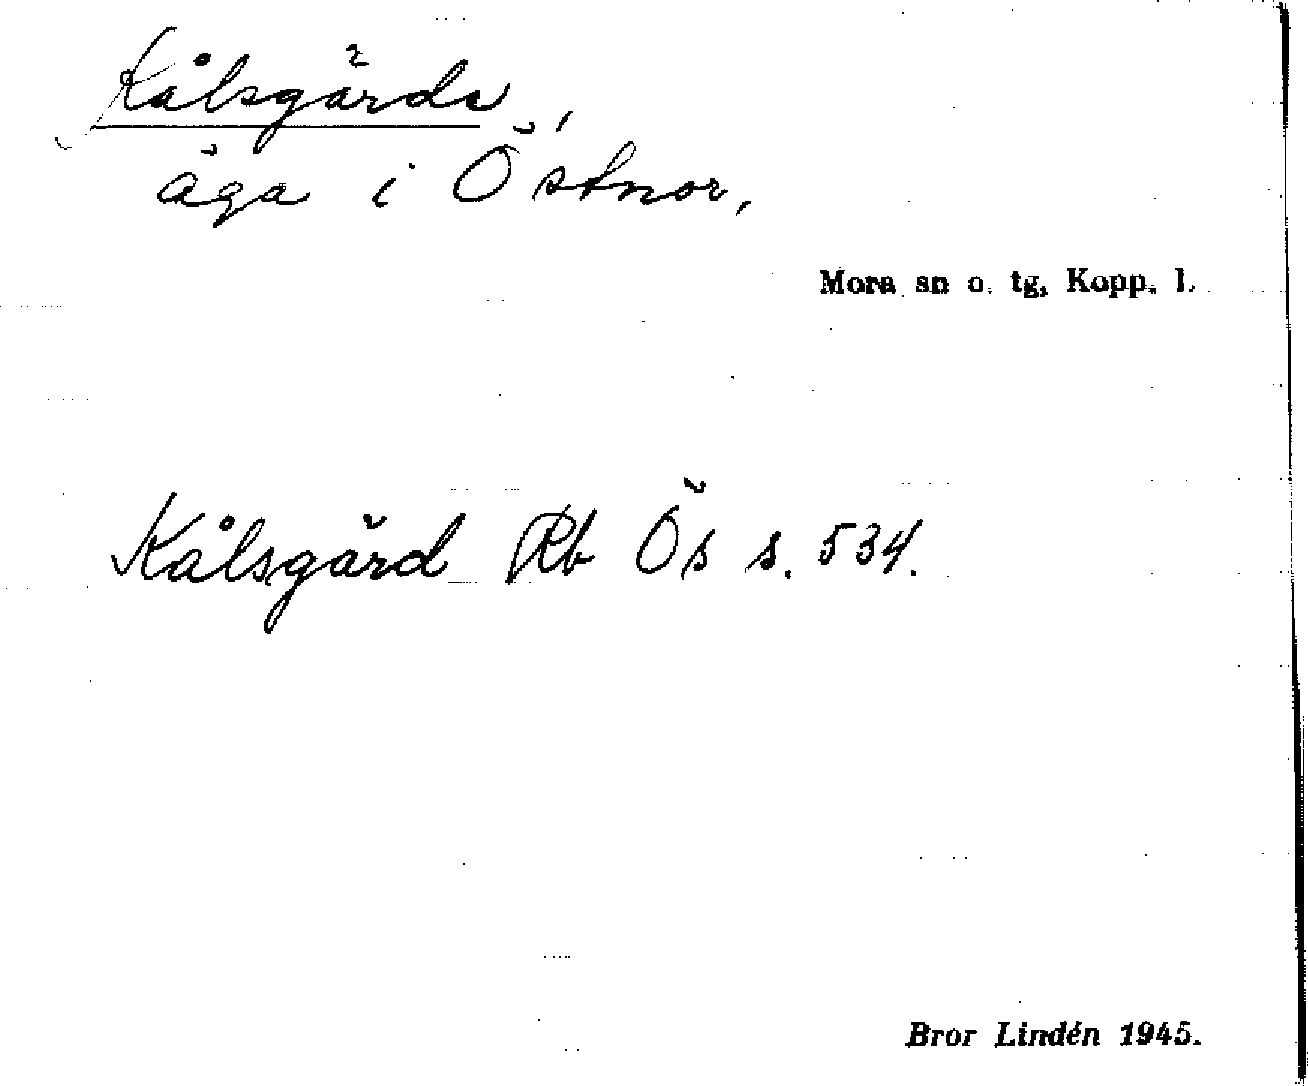 Kålsgärde,
äga i Östnor,
Mora sn o. tg, Kopp. l.
Kålsgärd Rb Ös s. 534.
Bror Lindén 1945.